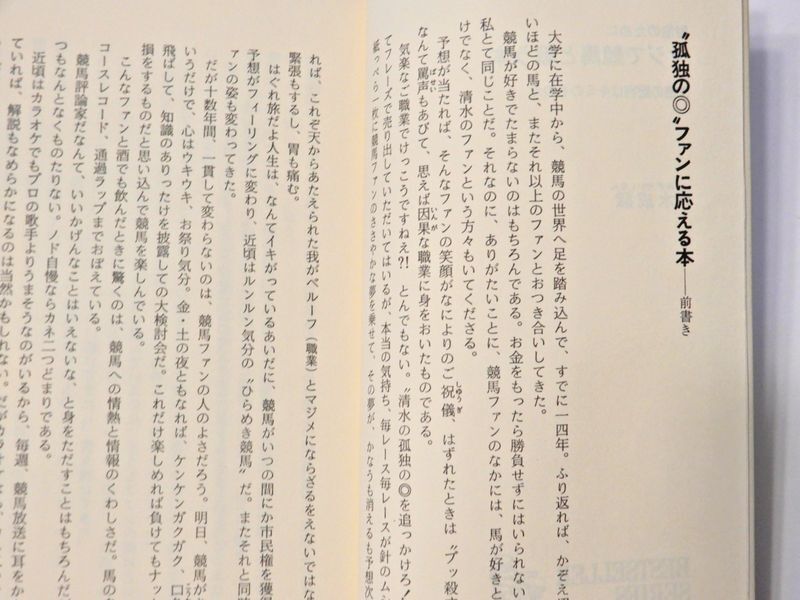 〝孤独の◎〟ファンに応える本──前書き
大学に在学中から、競馬の世界へ足を踏み込んで、すでに一四年。ふり返れば、かぞえ
いほどの馬と、またそれ以上のファンとおつき合いしてきた。
競馬が好きでたまらないのはもちろんである。お金をもったら勝負せずにはいられない
私とて同じことだ。それなのに、ありがたいことに、競馬ファンのなかには、馬が好きと
けでなく、清水のファンという方々もいてくださる。
予想が当たれば、そんなファンの笑顔がなによりのご祝儀、はずれたときは〝ブッ殺
なんて罵声もあびて、思えば因果な職業に身をおいたものである。
気楽なご職業でけっこうですねえ?! とんでもない。〝清水の孤独の◎を追っかけろ!
てフレーズで売り出していただいてはいるが、本当の気持ち、毎レース毎レースが針のム
紙っぺら一枚に競馬ファンのささやかな夢を乗せて、その夢が、かなうも消えるも予想次
れば、これぞ天からあたえられた我がベルーフ(職業)とマジメにならざるをえないではな
緊張もするし、胃も痛む。
はぐれ旅だよ人生は、なんてイキがっているあいだに、競馬がいつの間にか市民権を獲
予想がフィーリングに変わり、近頃はルンルン気分の〝ひらめき競馬〟だ。またそれと同
ァンの姿も変わってきた。
だが十数年間、一貫して変わらないのは、競馬ファンの人のよさだろう。明日、競馬が
いうだけで、心はウキウキ、お祭り気分。金・土の夜ともなれば、ケンケンガクガク、口
飛ばして、知識のありったけを披露しての大検討会だ。これだけ楽しめれば負けてもナッ
損をするものだと思い込んで競馬を楽しんでいる。
こんなファンと酒でも飲んだときに驚くのは、競馬への情熱と情報のくわしさだ。馬の
コースレコード、通過ラップまでおぼえている。
競馬評論家だなんて、いいかげんなことはいえないな、と身をただすことはもちろんだ
つもなんとなくものたりない。ノド自慢ならカネ二つどまりである。
近頃はカラオケでもプロの歌手よりうまそうなのがいるから、毎週、競馬放送に耳をか
ていれば、解説もなめらかになるのは当然かもしれない。だがカラオケ